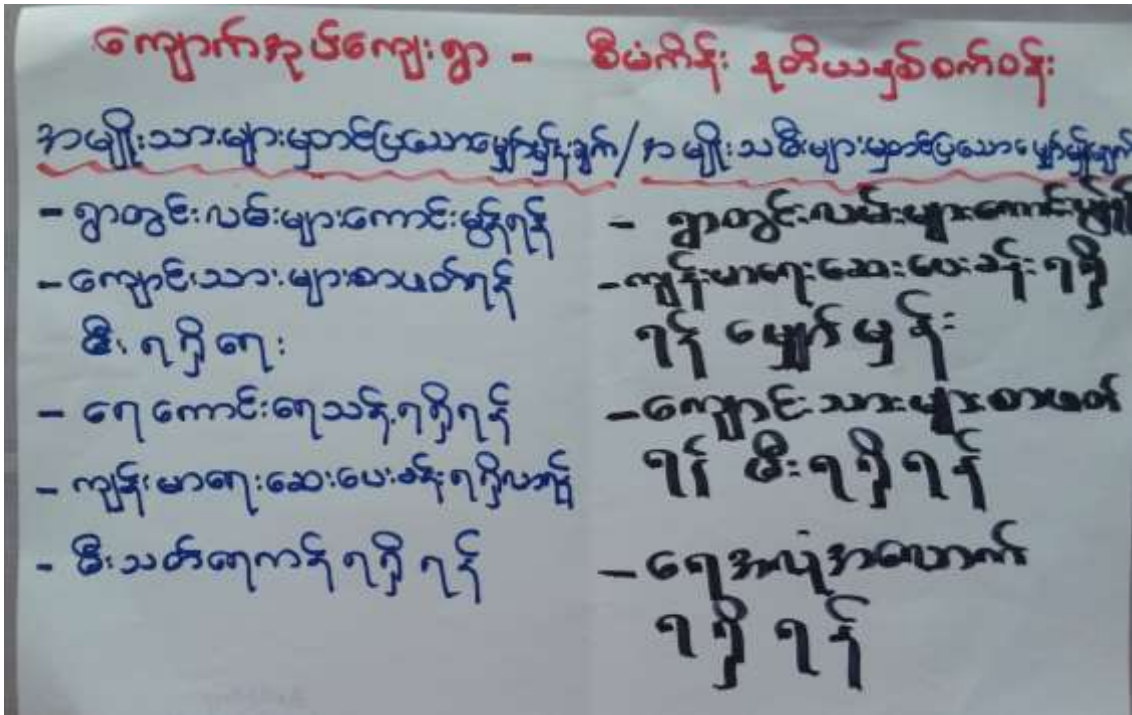 ကျောက်အုပ်ကျေးရွာ - စီမံကိန်း ဒုတိယနှစ်စက်ဝန်း
အမျိုးသားများမှတင်ပြသောမျှော်မှန်းချက် / အမျိုးသမီးများမှတင်ပြသောမျှော်မှန်းချက်
- ရွာတွင်းလမ်းများကောင်းမွန်ရန်
- ကျောင်းသားများစာဖတ်ရန်
မီးရရှိရေး
- ရေကောင်းရေသန့်ရရှိရန်
- ကျန်းမာရေးဆေးပေးခန်းရရှိလာရန်
- မီးသတ်ရေကန်ရရှိရန်
- ရွာတွင်းလမ်းများကောင်းမွန်ရန်
- ကျန်းမာရေးဆေးပေးခန်းရရှိ
ရန် မျှော်မှန်း
- ကျောင်းသားများစာဖတ်
ရန် မီးရရှိရန်
- ရေအလုံအလောက်
ရရှိရန်